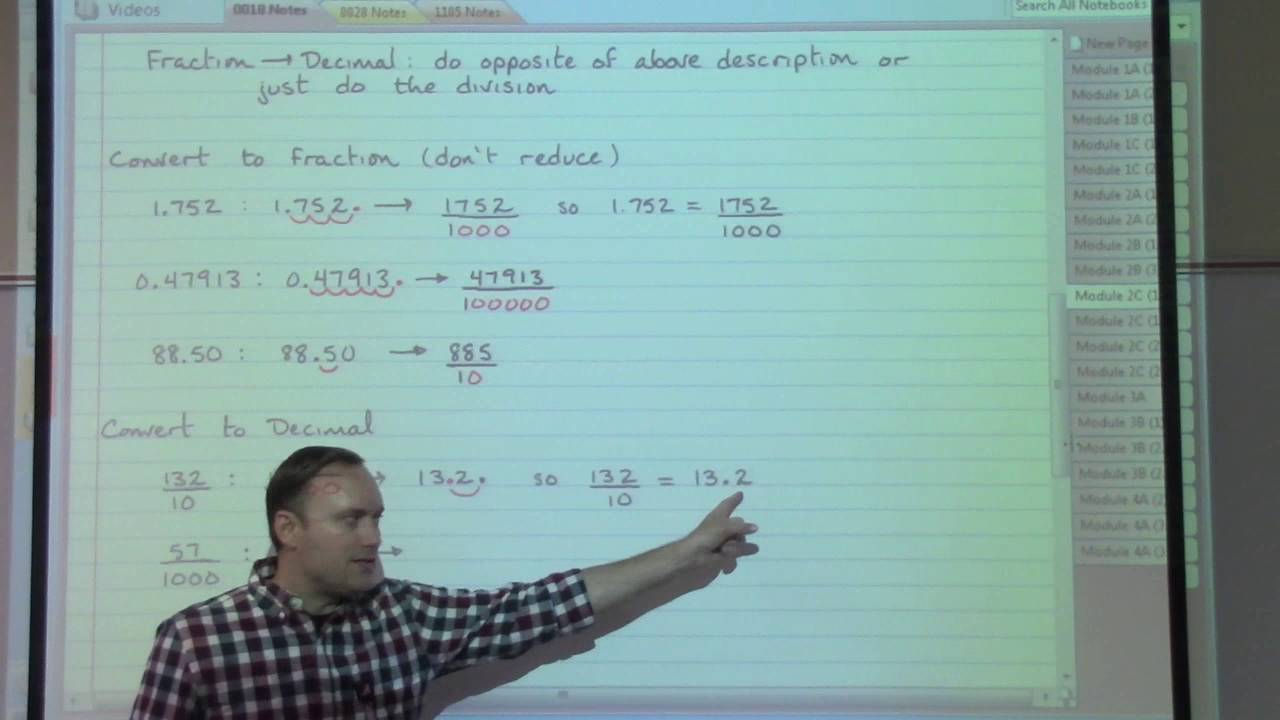 Videos 0018 Notes 0028 Notes 1105 Notes Search All Notebooks
Fraction → Decimal: do opposite of above description or
just do the division
Convert to fraction (don't reduce)
1.752 : 1.752. → 1752/1000 so 1.752 = 1752/1000
0.47913 : 0.47913. → 47913/100000
88.50 : 88.50 → 885/10
Convert to Decimal
132/10 : → 13.2. so 132/10 = 13.2
57/1000 : →
New Page
Module 1A (1
Module 1A (2
Module 1B (1
Module 1C (1
Module 1C (2
Module 2A (1
Module 2A (2
Module 2B (1
Module 2B (3
Module 2C (1
Module 2C (1
Module 2C (2
Module 2C (2
Module 3A
Module 3B (1
Module 3B (2
Module 3B (2
Module 4A (2
Module 4A (3
Module 4A (3